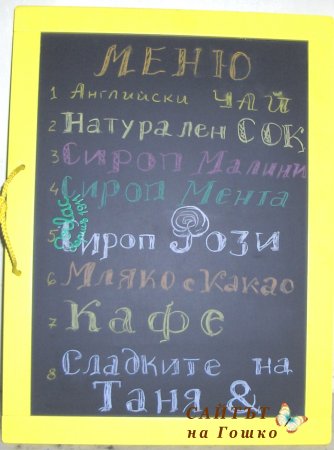 МЕНЮ
1 Английски ЧАЙ
2 Натурален СОК
3 Сироп Малини
4 Сироп Мента
5 Сироп Рози
6 Мляко с Какао
7 Кафе
8 Сладките на
Таня &
САЙТЪТ
на Гошко